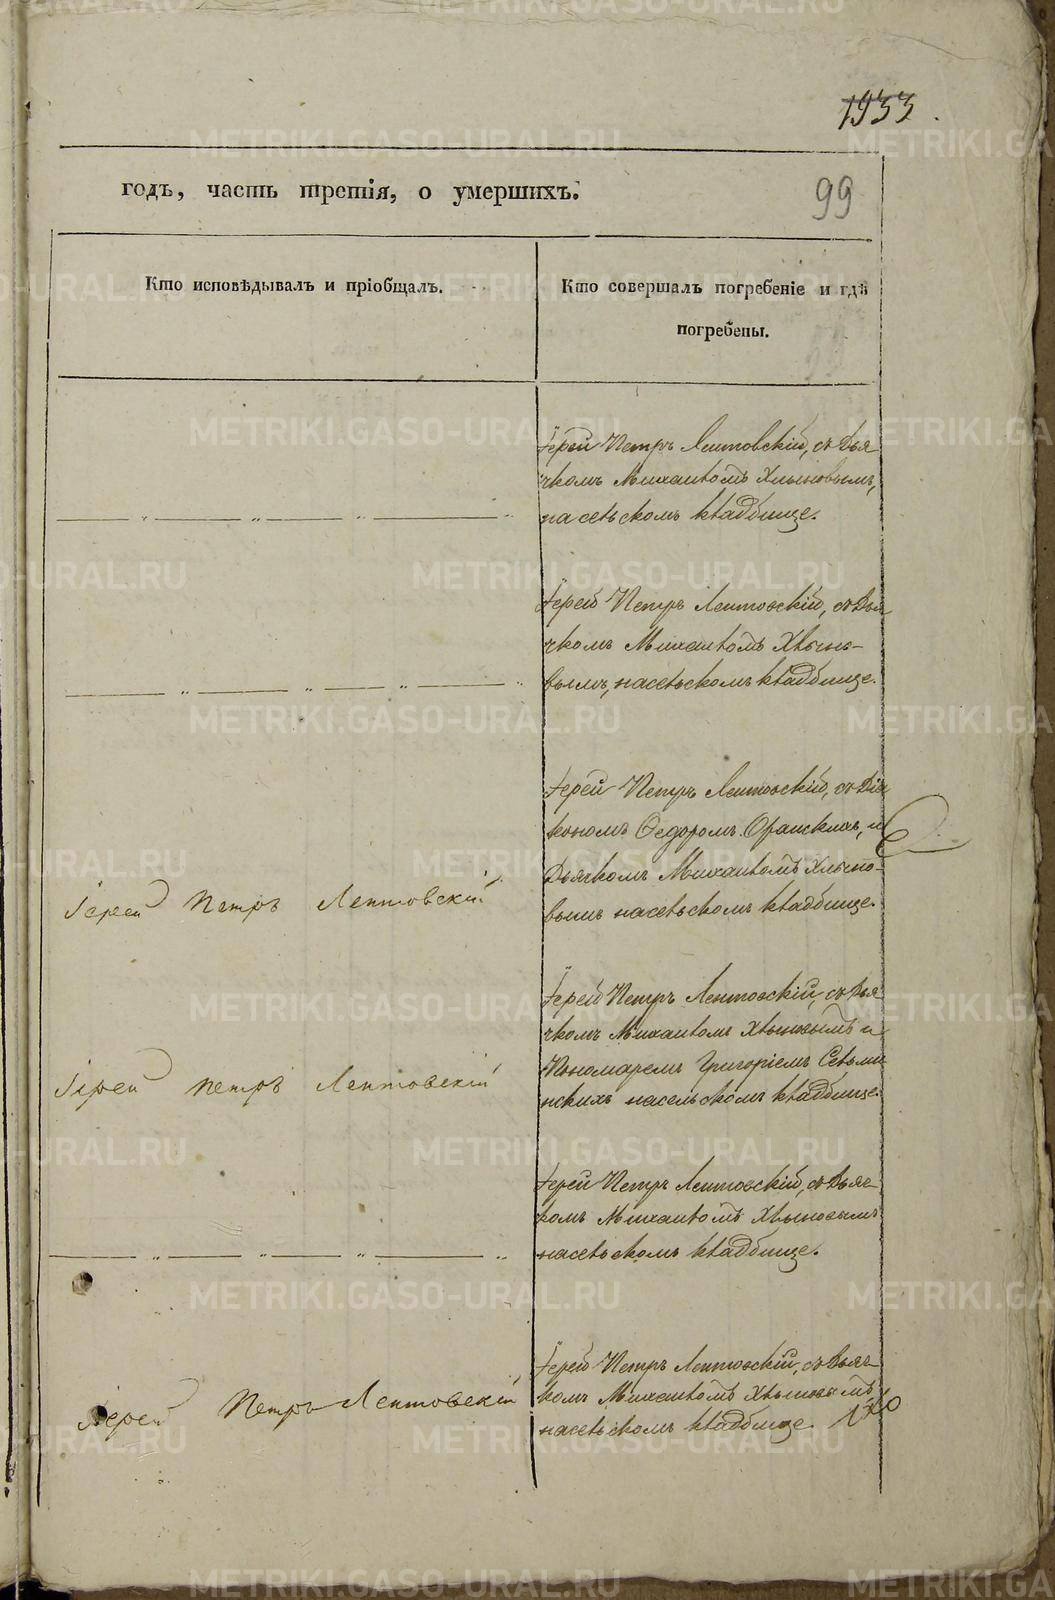 1933
годъ, часть третія, о умершихъ.
99
Кто исповѣдывалъ и пріобщалъ.
Кто совершалъ погребеніе и гдѣ
погребены.
Іерей Петръ Лептовскій, съ Дья
чкомъ Михаиломъ Хлыновымъ,
на сельскомъ кладбище.
Іерей Петръ Лептовскій, съ Дья
чкомъ Михаиломъ Хлыно-
вымъ, на сельскомъ кладбище.
Іерей Петръ Лептовскій
Іерей Петръ Лептовскій, съ Діа
кономъ Федоромъ и
Дьячкомъ Михаиломъ Хлыно-
вымъ на сельскомъ кладбище.
Іерей Петръ Лептовскій
Іерей Петръ Лептовскій, съ Дья
чкомъ Михаиломъ Хлыновымъ и
Пономаремъ Григоріемъ
на сельскомъ кладбище.
Іерей Петръ Лептовскій, съ Дьяч
комъ Михаиломъ Хлыновымъ
на сельскомъ кладбище.
Іерей Петръ Лептовскій
Іерей Петръ Лептовскій, съ Дьяч
комъ Михаиломъ Хлыновымъ
на сельскомъ кладбище.
METRIKI.GASO-URAL.RU